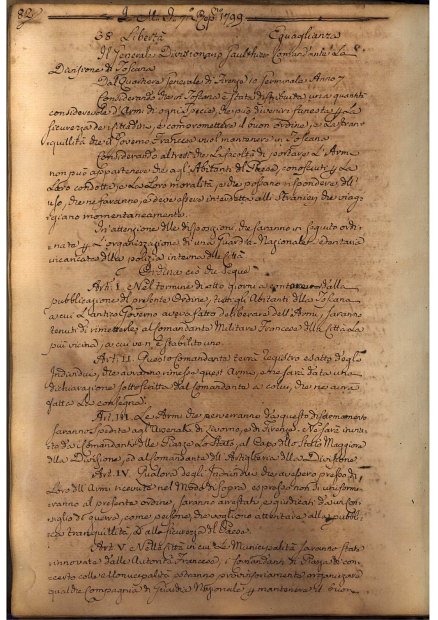 82
1799
38 Libertà Eguaglianza
Il Generale Divisionario Gaulthier Comandante La
Divisione di Toscana
Dal Quartiere Generale di Firenze 10 Germinale Anno 7
Considerando che in Toscana è stata distribuita una quantità
considerevole d'Armi di ogni specie, che può divenir funesta La
sicurezza de' Cittadini, e compromettere il buon ordine, e La tran
quillità che il Governo Francese vuol mantenere in Toscana
Considerando altresì che La facoltà di portare L'Armi
non può appartenere che agl'Abitanti del Paese, conosciuti La
Loro condotta, e La Loro moralità, e che possano rispondere dell'
uso, che ne faranno, e deve essere interdetta alli Stranieri che viag=
giano momentaneamente.
In attenzione delle disposizioni, che saranno in seguito ordi
nate L'organizzazione di una Guardia Nazionale
incaricata della polizia interna delle Città
Ordina ciò che segue
Art. I. Nel termine di otto giorni a contare dalla
pubblicazione del presente Ordine, tutti gli Abitanti della Toscana
a cui L'antico Governo aveva fatto deliberare dell'Armi, saranno
tenuti di rimetterle al Comandante Militare Francese della Città La
più vicina, a cui ven è stabilito uno.
Art. II. Questo Comandante terrà registro esatto degl'
Individui, che avranno rimesso quest'Armi, e ne sarà data una
dichiarazione sottoscritta dal Comandante a colui, che ne avrà
fatta La consegna.
Art. III. Le Armi che perverranno da questo disarmamento
saranno spedite agl'Arsenali di Livorno, e di Firenze. Ne sarà invia
to da i Comandanti delle Piazze Lo Stato, al Capo dello Stato Maggiore
della Divisione, ed al Comandante dell'Artiglieria della Divisione
Art. IV. Qualora degl'Individui che avessero presso di
Loro dell'Armi ricevute nel Modo di sopra espresso non si uniforme
ranno al presente ordine, saranno arrestati, e giudicati da un con
siglio di guerra, come persone, che vogliono attentare alla pubbli
ca tranquillità, ed alla sicurezza del Paese.
Art. V. Nelle Città in cui Le Municipalità saranno state
rinnovate dalle Autorità Francesi, i Comandanti di Piazza di con
certo colle Municipalità potranno provvisoriamente organizzare
qualche Compagnia di Guardia Nazionale mantenere il buon